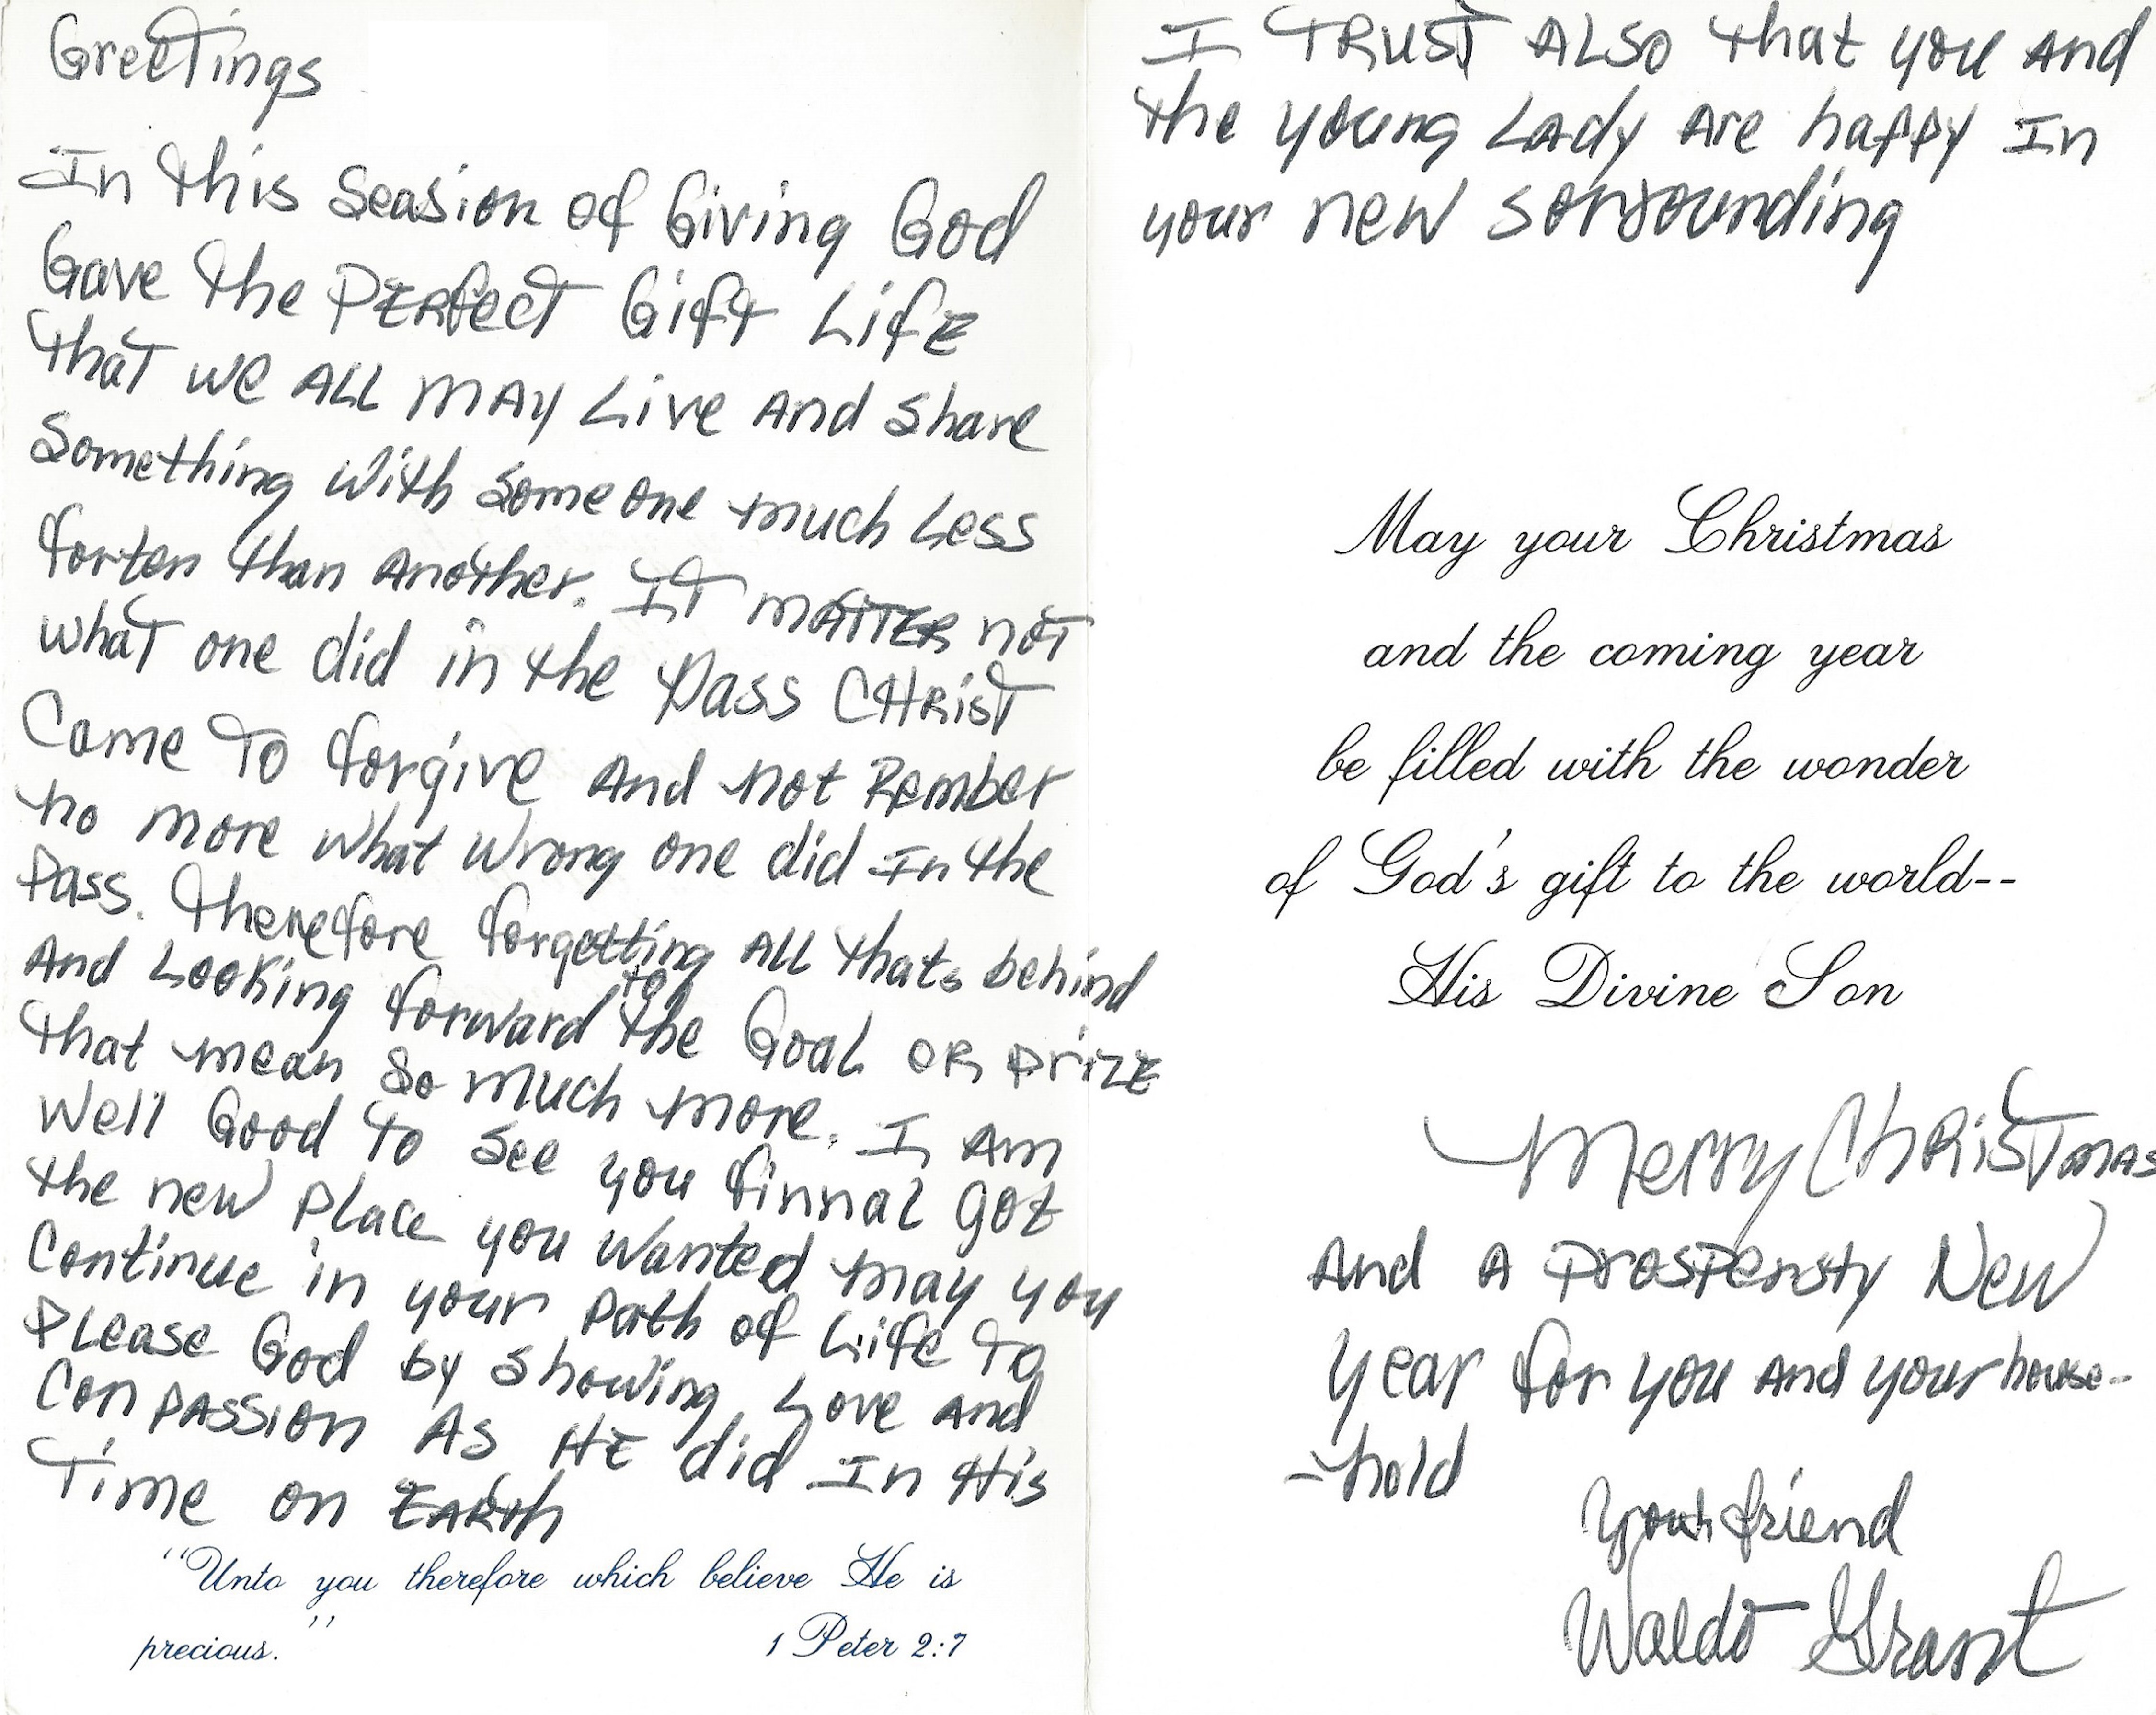 Greetings
In this Seasion of Giving God
Gave the PERfect Gift LifE
that we ALL MAy Live And Share
Something With Someone much Less
forten than Another. IT mATTER noT
whaT one did in the Pass CHRisT
Came To forgive And not Rember
no more what wrong one did In the
Pass. Therefore forgetting ALL thats behind
And Looking forward to the GoaL OR prizE
that mean So much more. I Am
Well Good to see you finnal got
the new PLace you wanted may you
Continue in your path of Life To
PLease God by showing Love and
ConpAssion As HE did In His
Time on EARth
"Unto you therefore which believe He is
precious."    1 Peter 2:7
I TRUST ALSO that you And
the young LAdy Are happy In
your new sorrounding
May your Christmas
and the coming year
be filled with the wonder
of God's gift to the world--
His Divine Son
Merry ChRisTmas
And A ProsPersty New
Year for you And your house-
-hold
Your friend
Waldo Grant